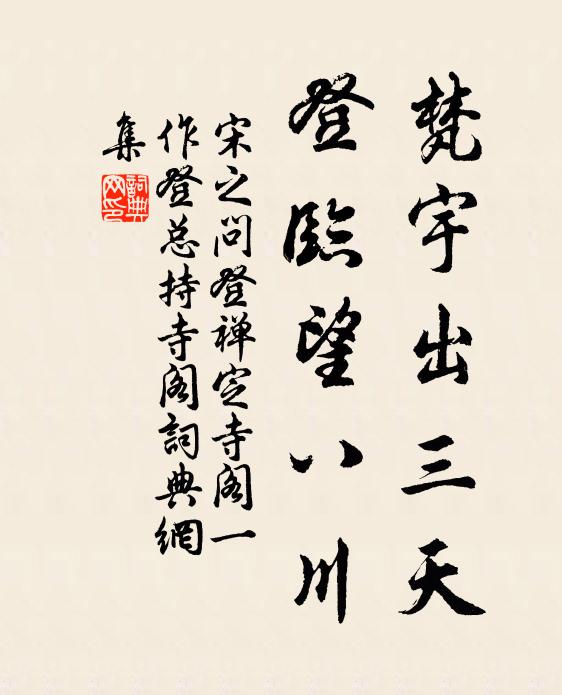 梵宇出三天
登臨望八川
宋之问登禅定寺阁一
作登总持寺阁詞典網
集
詞典網印